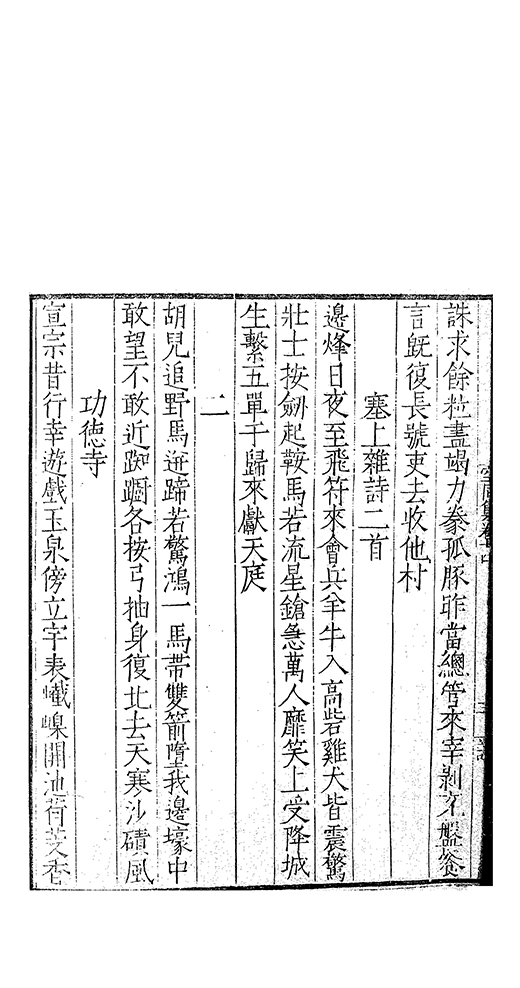 誅求餘粒盡竭力豢孤豚昨當總管來宰剝充盤飧
言旣復長號吏去收他村
塞上雜詩二首
邊烽日夜至飛符來會兵羊牛入高砦雞犬皆震驚
壯士按劒起鞍馬若流星鎗急萬人靡笑上受降城
生繫五單于歸來獻天庭
二
胡兒追野馬迸蹄若驚鴻一馬帶雙箭墮我邊壕中
敢望不敢近踟躕各按弓抽身復北去天寒沙磧風
功德寺
宣宗昔行幸遊戲玉泉傍立宇表巀嵲開池荷芰香